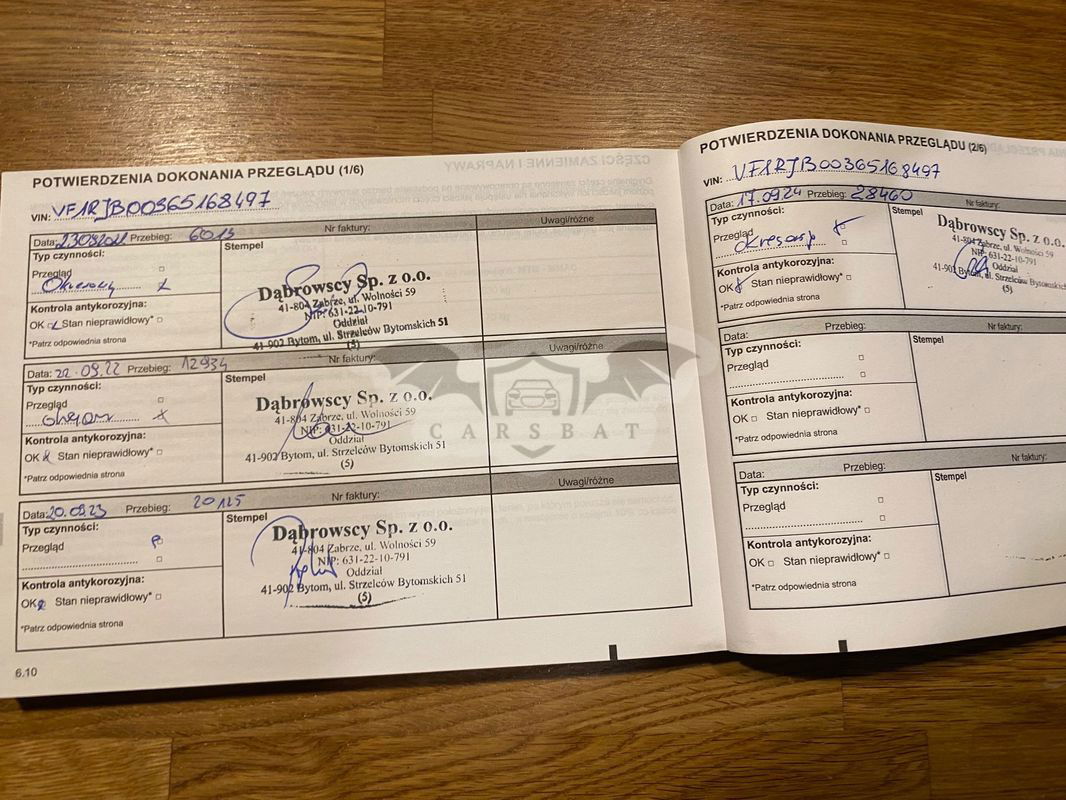 POTWIERDZENIA DOKONANIA PRZEGLĄDU (1/6)
VIN: VF1RJB00365168497
Data: Przebieg: 6015 Nr faktury: Uwagi/różne
Typ czynności: Stempel
Przegląd
Okresowy
Kontrola antykorozyjna:
OK Stan nieprawidłowy*
*Patrz odpowiednia strona
Dąbrowscy Sp. z o.o.
41-804 Zabrze, ul. Wolności 59
NIP: 631-22-10-791
Oddział
41-902 Bytom, ul. Strzelców Bytomskich 51
(5)
Data: 22.09.22 Przebieg: 12934 Nr faktury: Uwagi/różne
Typ czynności: Stempel
Przegląd
Kontrola antykorozyjna:
OK Stan nieprawidłowy*
*Patrz odpowiednia strona
Dąbrowscy Sp. z o.o.
41-804 Zabrze, ul. Wolności 59
NIP: 631-22-10-791
Oddział
41-902 Bytom, ul. Strzelców Bytomskich 51
(5)
Data: 20.09.23 Przebieg: 20125 Nr faktury: Uwagi/różne
Typ czynności: Stempel
Przegląd
Kontrola antykorozyjna:
OK Stan nieprawidłowy*
*Patrz odpowiednia strona
Dąbrowscy Sp. z o.o.
41-804 Zabrze, ul. Wolności 59
NIP: 631-22-10-791
Oddział
41-902 Bytom, ul. Strzelców Bytomskich 51
(5)
6.10
CARSBAT
POTWIERDZENIA DOKONANIA PRZEGLĄDU (2/6)
VIN: VF1RJB00365168497
Data: 17.09.24 Przebieg: 28460 Nr faktury:
Typ czynności: Stempel
Przegląd
Kontrola antykorozyjna:
OK Stan nieprawidłowy*
*Patrz odpowiednia strona
Dąbrowscy Sp. z o.o.
41-804 Zabrze, ul. Wolności 59
NIP: 631-22-10-791
Oddział
41-902 Bytom, ul. Strzelców Bytomskich
(5)
Data: Przebieg: Nr faktury:
Typ czynności: Stempel
Przegląd
Kontrola antykorozyjna:
OK Stan nieprawidłowy*
*Patrz odpowiednia strona
Data: Przebieg: Nr faktury:
Typ czynności: Stempel
Przegląd
Kontrola antykorozyjna:
OK Stan nieprawidłowy*
*Patrz odpowiednia strona